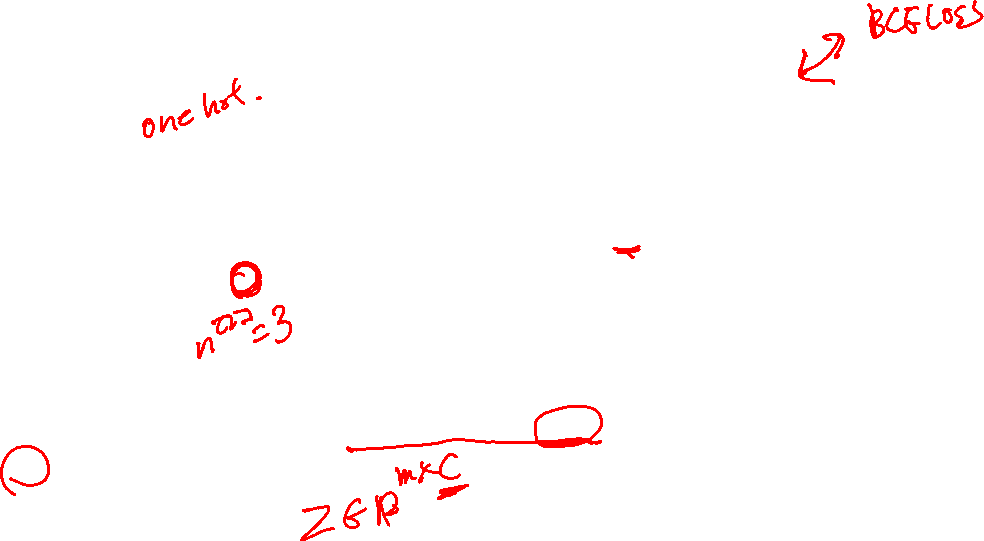 BCELOSS
one hot.
n^[2]=3
Z∈R^m×C